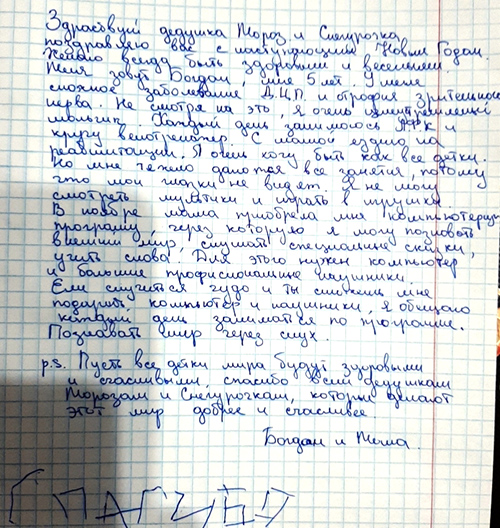 Здраствуй дедушка Мороз и Снегурочка
поздравляю вас с наступающим Новым Годом.
Желаю всегда быть здоровыми и веселыми.
Меня зовут Богдан, мне 5 лет. У меня
сложное заболевание ДЦП и отрофия зрительного
нерва. Не смотря на это, я очень целеустремленый
мальчик. Каждый день занимаюсь ЛФК и
кручу велотренажер. С мамой ездию на
реабилитации. Я очень хочу быть как все детки.
Но мне тежело даются все занятия, потому
что мои глазки не видет. Я не могу
смотреть мультики и играть в игрушки.
В ноябре мама приобрела мне компьютерную
программу, через которую я могу познавать
внешний мир, слушать специальные сказки,
учить слова. Для этого нужен компьютер
и большие профисиональные наушники.
Если случиться чудо и ты сможешь мне
подарить компьютер и наушники, я обещаю
каждый день заниматся по программе.
Познавать мир через слух.
p.s. Пусть все детки мира будут здоровыми
и счасливыми, спасибо всем дедушкам
Морозам и Снегурочкам, которые делают
этот мир добрее и счасливее.
Богдан и Мама.
СПАСИБО